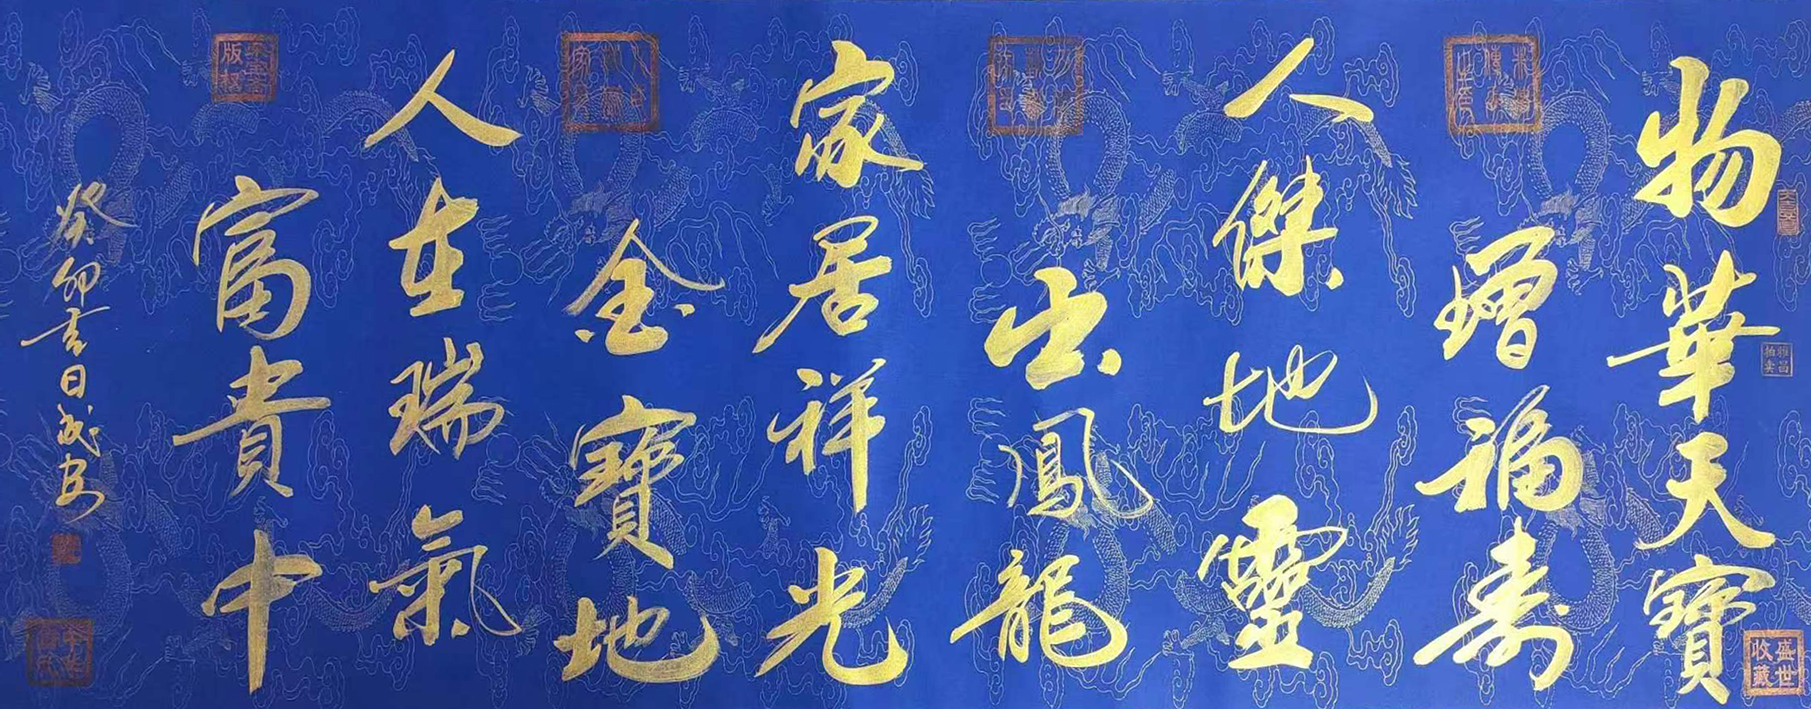 物華天寶
增福寿
人傑地靈
出鳳龍
家居祥光
金寶地
人在瑞氣
富貴中
癸卯吉日
雅昌拍卖
盛世收藏